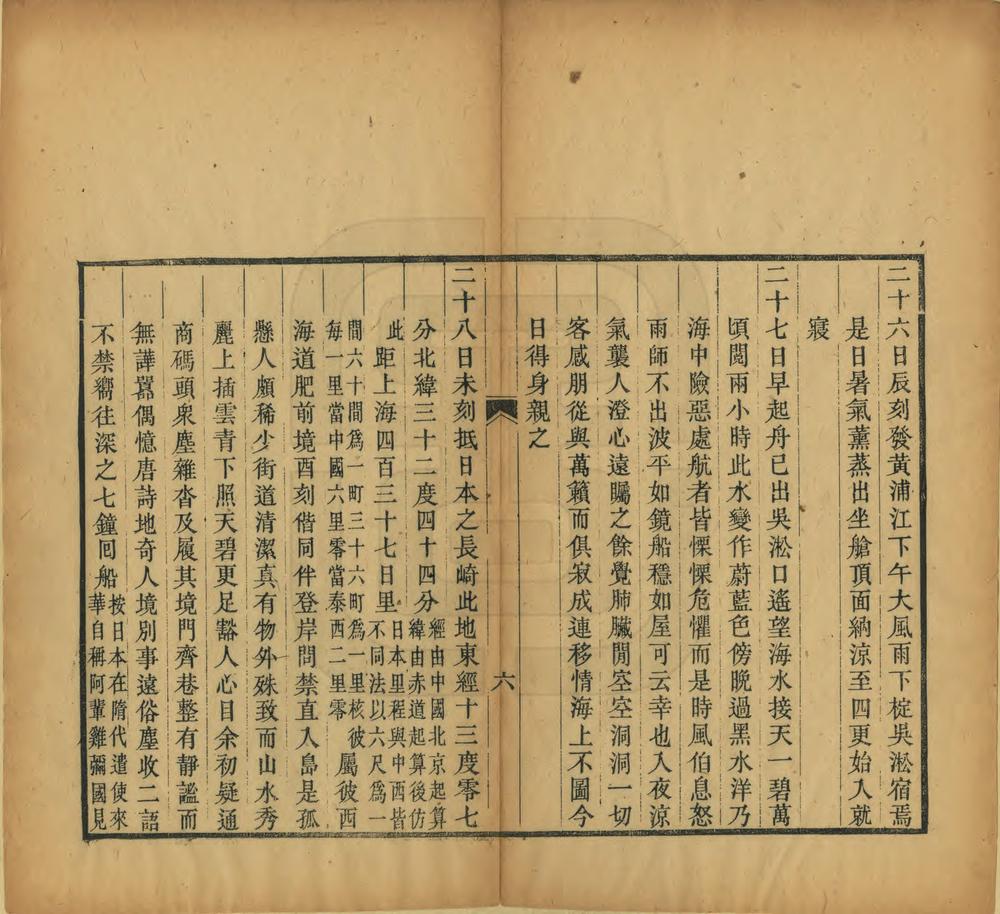 二十六日辰刻發黃浦江下午大風雨下椗吳淞宿焉
是日暑氣薰蒸出坐艙頂面納涼至四更始入就
寢
二十七日早起舟已出吳淞口遙望海水接天一碧萬
頃閱兩小時此水變作蔚藍色傍晚過黑水洋乃
海中險惡處航者皆慄慄危懼而是時風伯息怒
雨師不出波平如鏡船穩如屋可云幸也入夜涼
氣襲人澄心遠矚之餘覺肺臟閒空空洞洞一切
客感朋從與萬籟而俱寂成連移情海上不圖今
日得身親之
六
二十八日未刻抵日本之長崎此地東經十三度零七
分北緯三十二度四十四分經由中國北京起算緯由赤道起算後仿
此距上海四百三十七日里日本里程與中西皆不同法以六尺爲一
間六十間爲一町三十六町爲一里核彼每一里當中國六里零當泰西二里零屬彼西
海道肥前境酉刻偕同伴登岸問禁直入島是孤
懸人頗稀少街道清潔真有物外殊致而山水秀
麗上插雲青下照天碧更足豁人心目余初疑通
商碼頭衆塵雜沓及履其境門齊巷整有靜謐而
無譁囂偶憶唐詩地奇人境別事遠俗塵收二語
不禁嚮往深之七鐘回船按日本在隋代遣使來華自稱阿輩雞彌國見